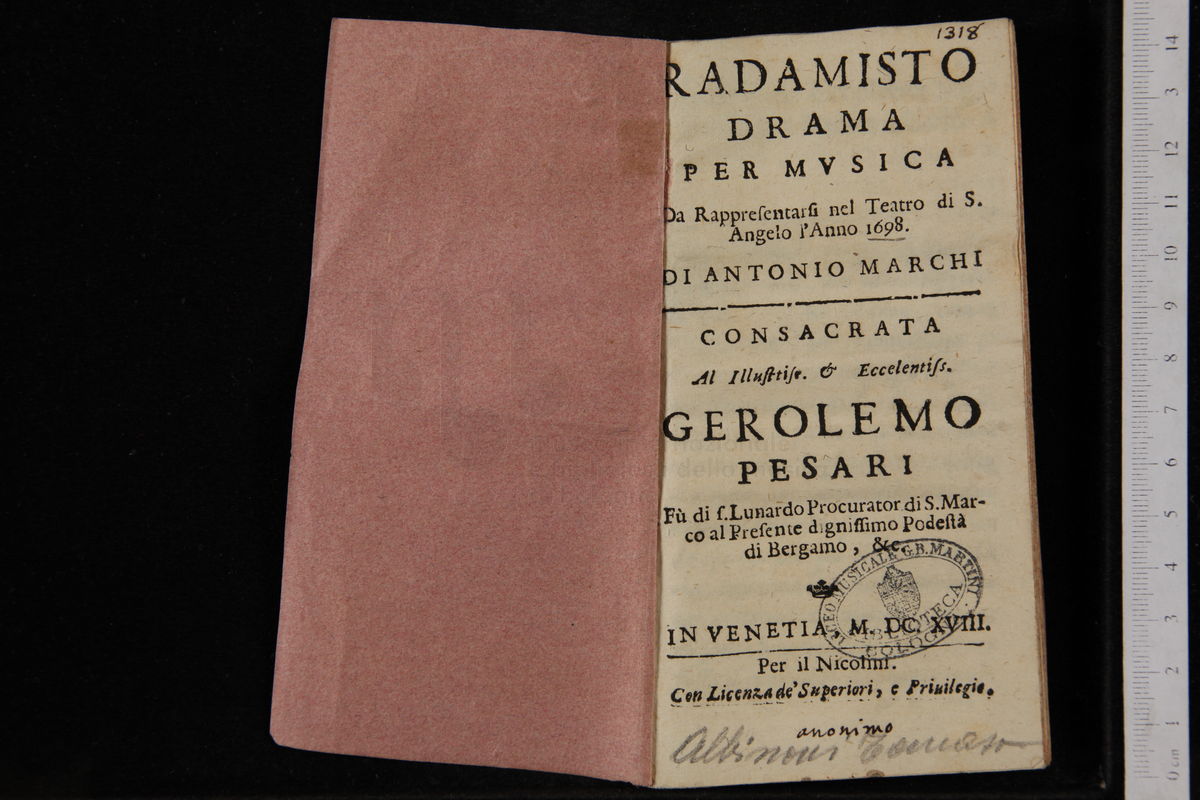 1318
RADAMISTO
DRAMA
PER MVSICA
Da Rappreſentarſi nel Teatro di S.
Angelo l'Anno 1698.
DI ANTONIO MARCHI
CONSACRATA
Al Illuſtriſs. & Eccelentiſs.
GEROLEMO
PESARI
Fù di ſ. Lunardo Procurator di S. Mar-
co al Preſente digniſſimo Podeſtà
di Bergamo, &c.
LICEO MUSICALE G.B. MARTINI
BIBLIOTECA
BOLOGNA
IN VENETIA, M. DC. XVIII.
Per il Nicolini.
Con Licenza de' Superiori, e Priuilegio.
anonimo
Albinoni Tomaso
14
3
12
11
10
9
8
7
6
5
4
3
2
1
0 cm